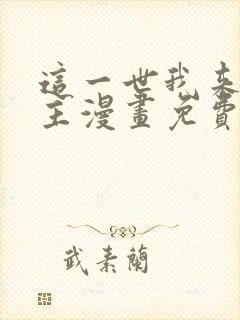 這一世我來
主漫畫免費
武素蘭